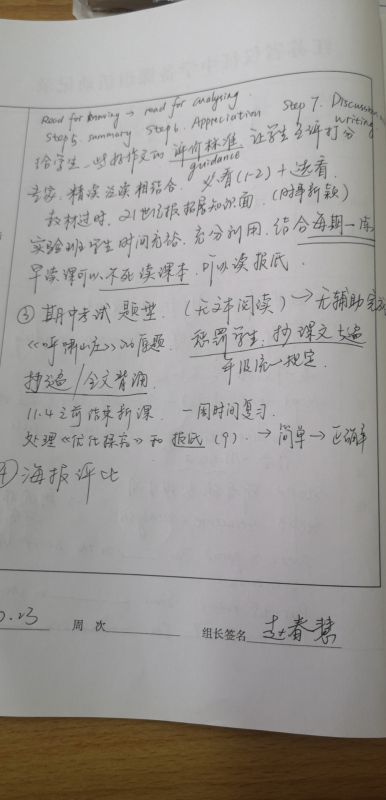 Read for knowing → read for analysing.
Step 5. summary Step 6. Appreciation Step 7. Discussion
writing
给学生一些好作文的评价标准 让学生互评打分
guidance
精读泛读相结合. 必看(1-2)+选看.
教材过时. 21世纪报拓展知识面. (时事新颖)
实验班学生时间充裕. 充分利用. 结合每期一
早读课可以不死读课本. 可以读报纸.
③ 期中考试题型. (无文本阅读) → 无辅助完
《呼啸山庄》 原题. 惩罚学生. 抄课文
抄 / 全文背诵 年级统一规定.
11.4之前结束新课. 一周时间复习.
处理《优化 》和报纸(9). → 简单 → 正确率
④ 海报评比
.23 周 次 组长签名 赵春慧